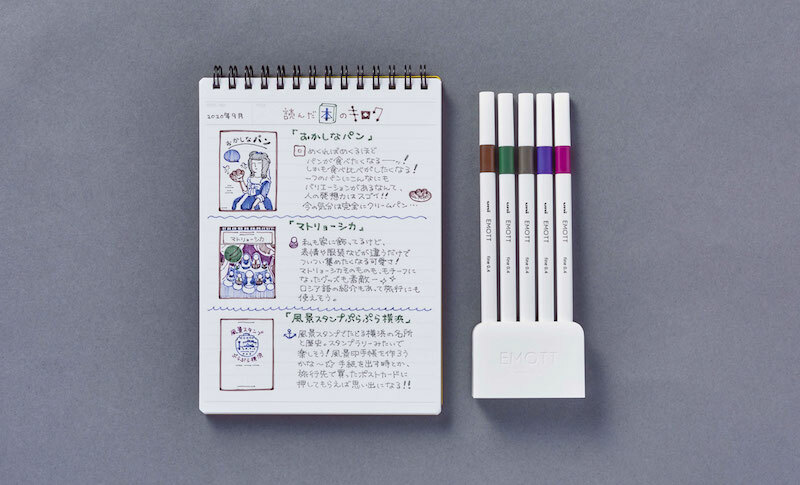 2020年9月
読んだ本のキロク
おかしなパン
「おかしなパン」
めくればめくるほど
パンが食べたくなるーーッ!
しかも食べ比べがしたくなる!
一つのパンにこんなにも
バリエーションがあるなんて、
人の発想力はスゴイ!!
今の気分は完全にクリームパン…
マトリョーシカ
「マトリョーシカ」
私も家に飾ってるけど、
表情や服装などが違うだけで
ついつい集めたくなる可愛さ!
マトリョーシカそのものも、モチーフに
なったグッズも素敵ー♪
ロシア語の紹介もあって旅行にも
使えそう。
風景スタンプ
ぶらぶら横浜
「風景スタンプぶらぶら横浜」
風景スタンプでたどる横浜の名所
と歴史。スタンプラリーみたいで
楽しそう!風景印手帳を作ろう
かな〜☆ 手紙を出す時とか、
旅行先で買ったポストカードに
押してもらえば思い出になる!!
uni EMOTT fine 0.4
uni EMOTT fine 0.4
uni EMOTT fine 0.4
uni EMOTT fine 0.4
uni EMOTT fine 0.4
EMOTT